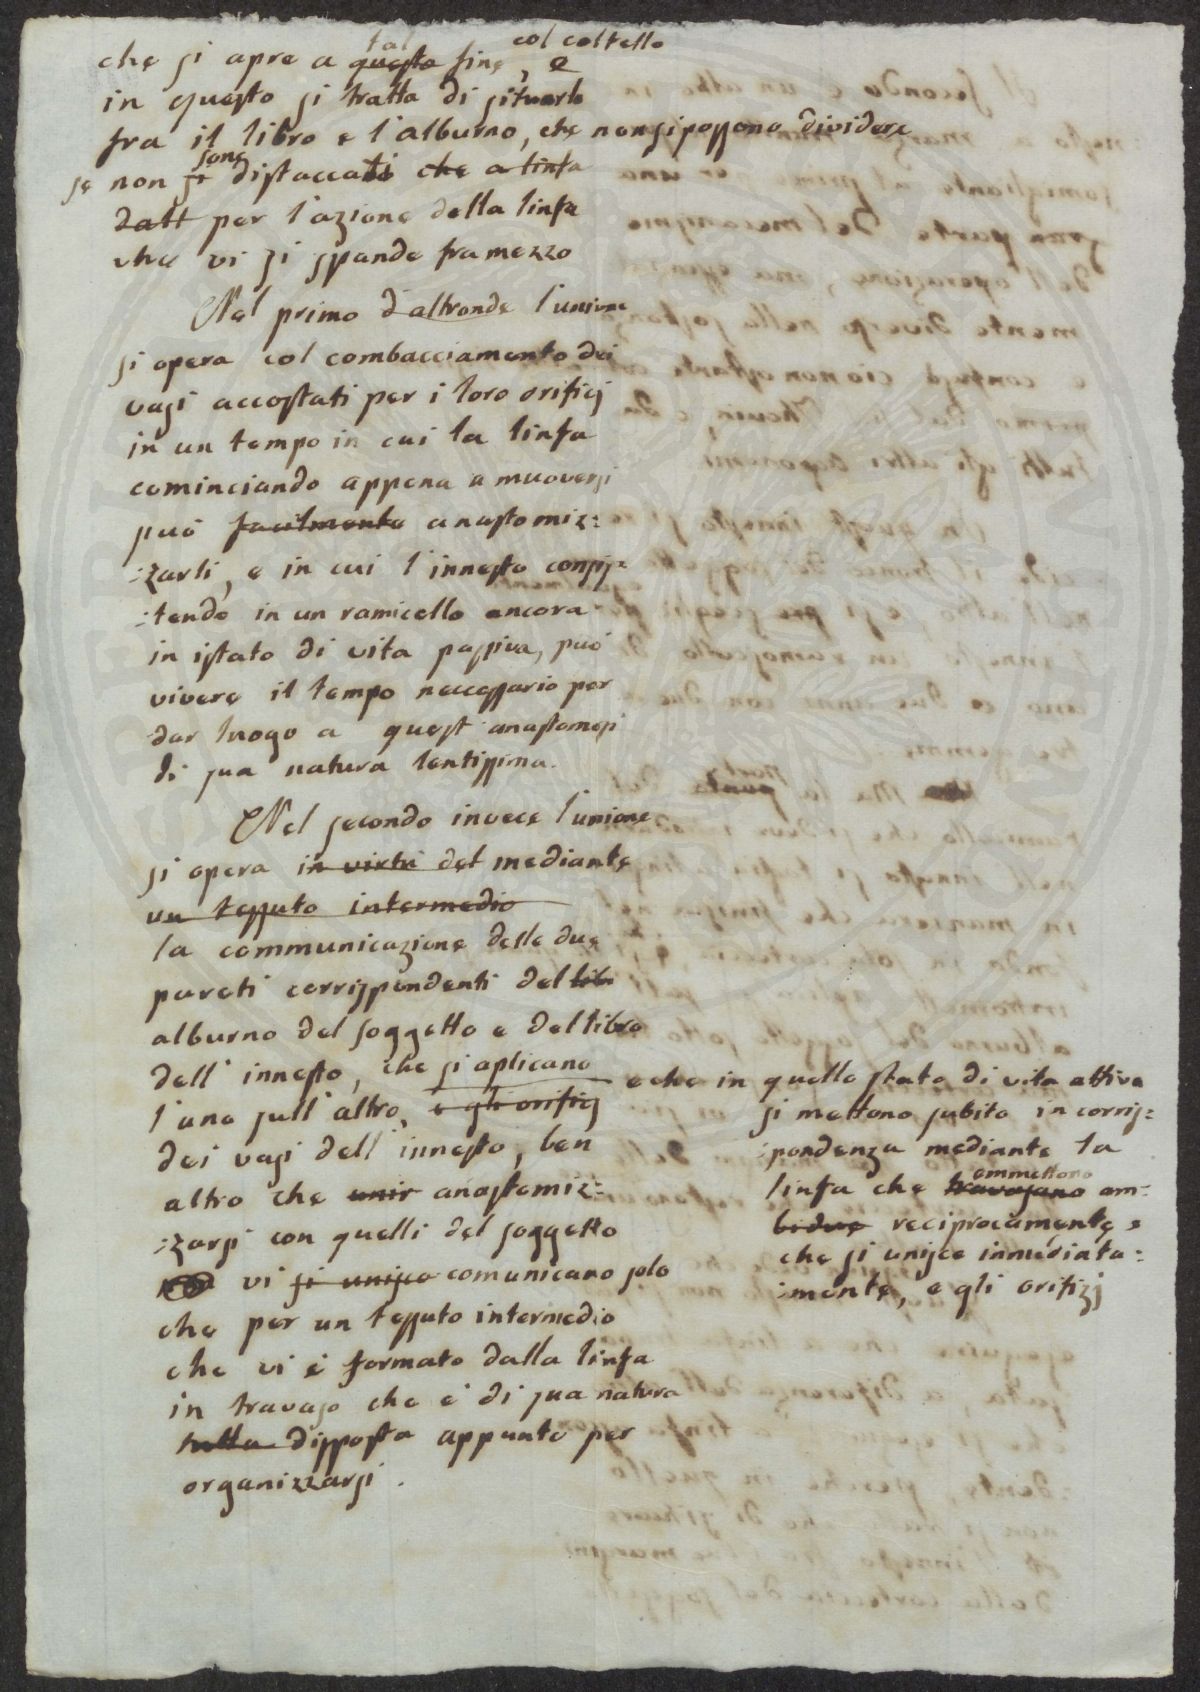 tal col coltello
che si apre a questo fine, e
in questo si tratta di situarlo
fra il libro e l'alburno, che non si possono dividere
sono
se non si distaccati che a linfa
dall per l'azione della linfa
che vi si spande framezzo
Nel primo d'altronde l'unione
si opera col combacciamento dei
vasi accostati per i loro orifizj
in un tempo in cui la linfa
cominciando appena a muoversi
può facilmente anastomiz:
:zarli, e in cui l'innesto consis:
:tendo in un ramicello ancora
in istato di vita passiva, può
vivere il tempo neccessario per
dar luogo a quest anastomosi
di sua natura lentissima.
Nel secondo invece l'unione
si opera in virtù del mediante
un tessuto intermedio
la communicazione delle due
pareti corrispondenti del lib
alburno del soggetto e del libro
dell'innesto, che si aplicano
l'uno sull'altro, e gli orifizj
dei vasi dell'innesto, ben
altro che unir anastomiz:
:zarsi con quelli del soggetto
vi si unisco comunicano solo
che per un tessuto intermedio
che vi è formato dalla linfa
in travaso che è di sua natura
tutta disposta appunto per
organizzarsi.
e che in quello stato di vita attiva
si mettono subito in corris:
:pondenza mediante la
emmettono
linfa che travasano am:
bidue reciprocamente e
che si unisce immediata:
:mente, e gli orifizj